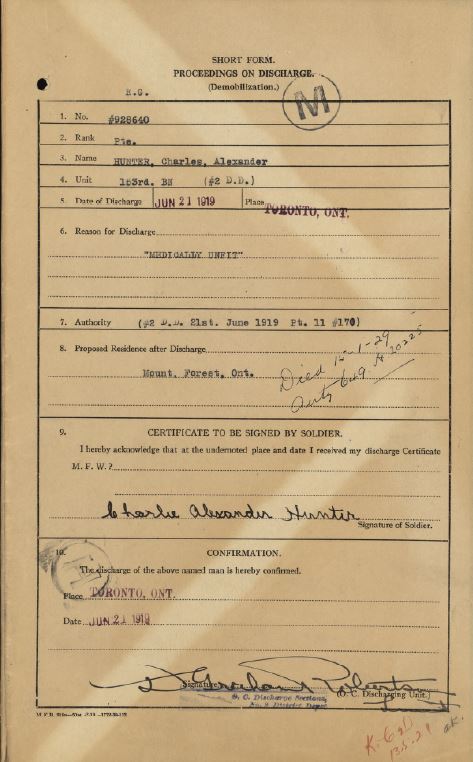 SHORT FORM.
PROCEEDINGS ON DISCHARGE.
(Demobilization.)
H.G.
M
1. No. #928640
2. Rank Pte.
3. Name HUNTER, Charles, Alexander
4. Unit 153rd. BN (#2 D.D.)
5. Date of Discharge JUN 21 1919 Place TORONTO, ONT.
6. Reason for Discharge
"MEDICALLY UNFIT"
7. Authority (#2 D.D. 21st. June 1919 Pt. 11 #170)
8. Proposed Residence after Discharge
Mount Forest, Ont.
Died 15-1-29
Auty 649 H 20225
9. CERTIFICATE TO BE SIGNED BY SOLDIER.
I hereby acknowledge that at the undernoted place and date I received my discharge Certificate
M. F. W.?
Charlie Alexander Hunter
Signature of Soldier.
10. CONFIRMATION.
The discharge of the above named man is hereby confirmed.
Place TORONTO, ONT.
Date JUN 21 1919
Signature
(O. C. Discharging Unit.)
O. C. Discharge Sections,
No. 2 District Depot